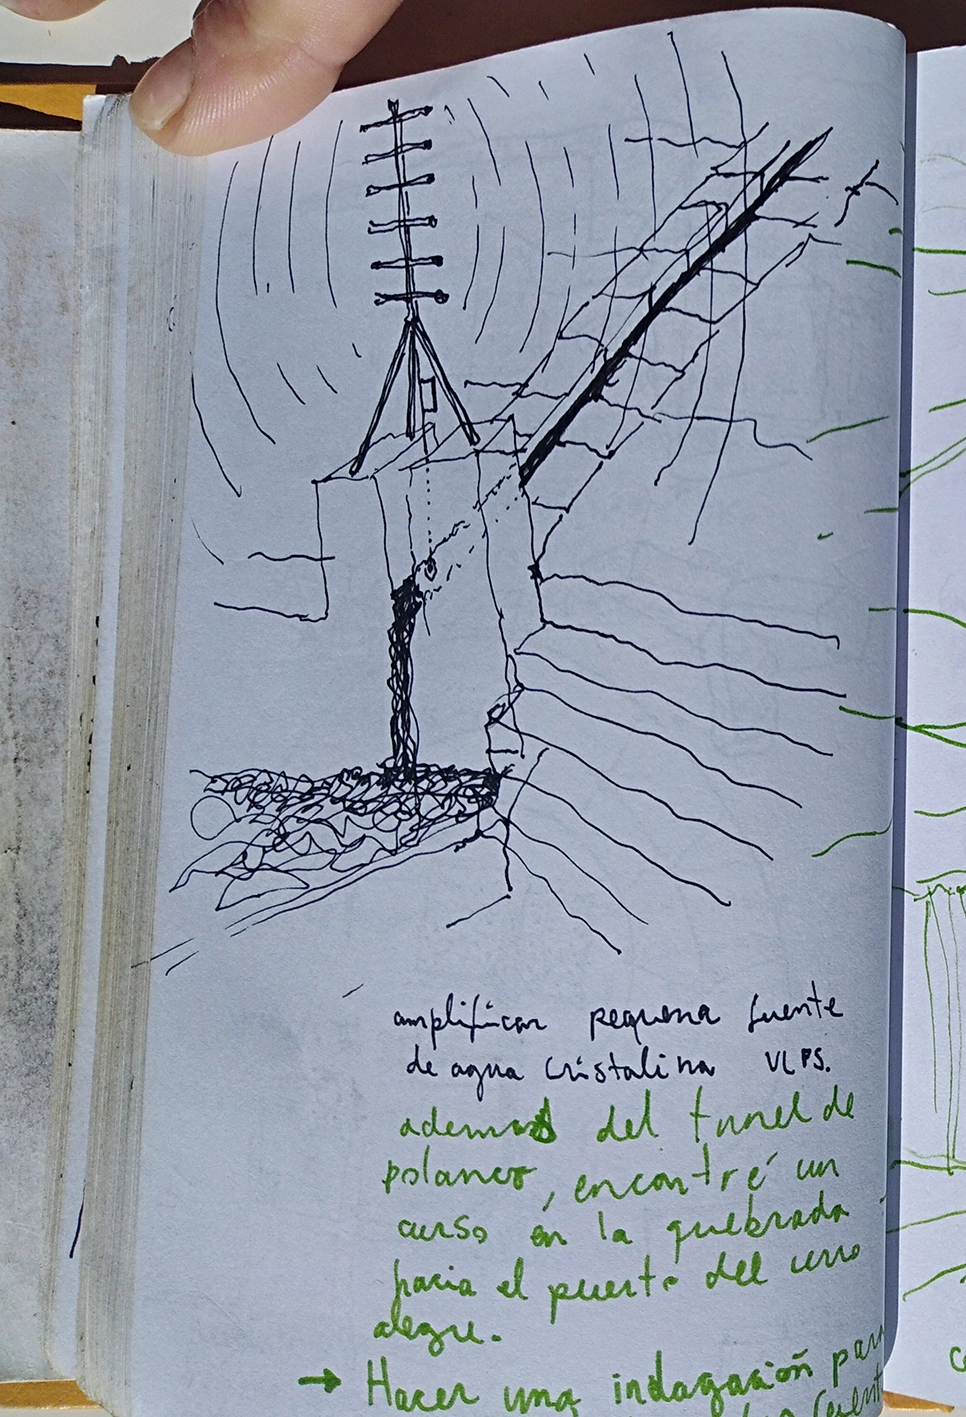 amplificar pequena fuente
de agua cristalina VLPS.
ademas del tunel de
polanco, encontré un
curso en la quebrada
hacia el puerto del cerro
alegre.
→ Hacer una indagación para